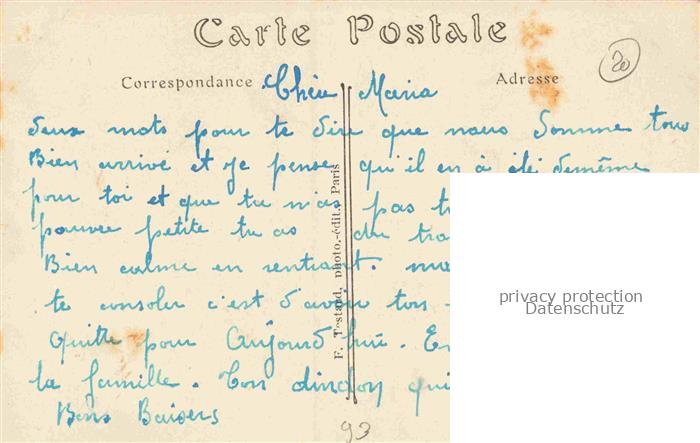 Carte Postale
20
Correspondance Adresse
Chère Maria
deux mots pour te dire que nous somme tous
Bien arrivé et je pense qu'il en à été demême
pour toi et que tu n'as pas
pauvre petite tu as du
Bien calme en rentrant.
te consoler c'est d'avoir ton
quitte pour Aujourd'hui.
la famille. Ton dindon qui
Bons Baisers
F. Testand, photo.-édit., Paris
93
privacy protection
Datenschutz